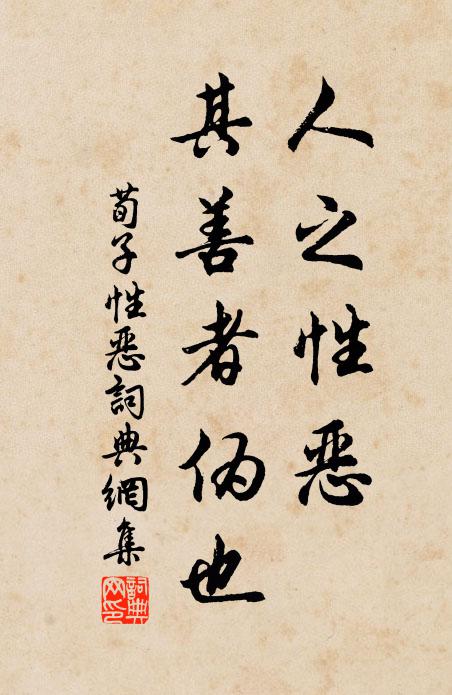 人之性恶
其善者伪也
荀子性恶詞典網集
詞典
网印